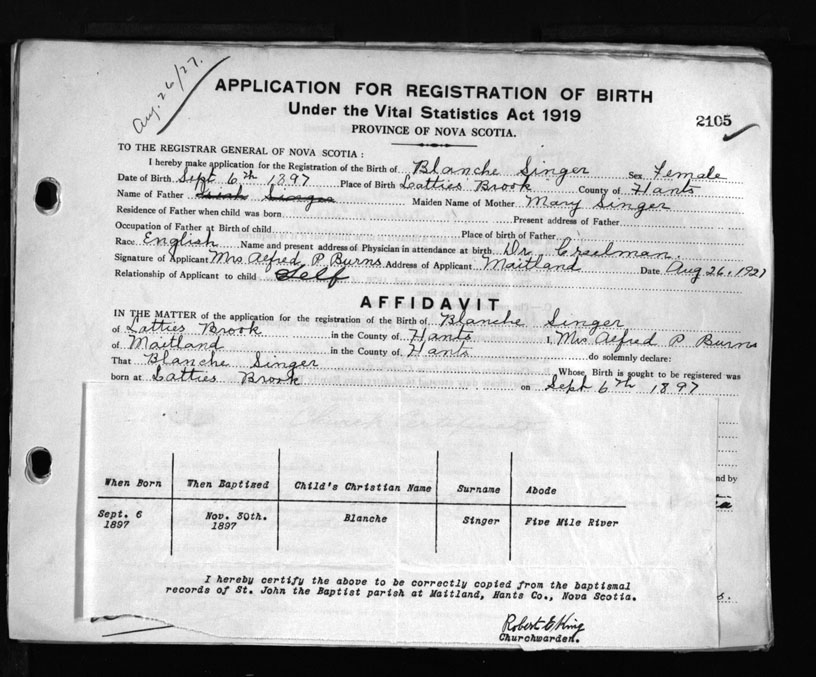 Aug. 26/27.
APPLICATION FOR REGISTRATION OF BIRTH
Under the Vital Statistics Act 1919
2105
PROVINCE OF NOVA SCOTIA.
TO THE REGISTRAR GENERAL OF NOVA SCOTIA :
I hereby make application for the Registration of the Birth of Blanche Singer Sex Female
Date of Birth Sept 6th 1897 Place of Birth Latties Brook County of Hants
Name of Father Singer Maiden Name of Mother Mary Singer
Residence of Father when child was born Present address of Father
Occupation of Father at Birth of child Place of birth of Father
Race English Name and present address of Physician in attendance at birth Dr. Creelman.
Signature of Applicant Mrs Alfred P Burns Address of Applicant Maitland Date Aug 26, 1927
Relationship of Applicant to child Self
AFFIDAVIT
IN THE MATTER of the application for the registration of the Birth of Blanche Singer
of Latties Brook in the County of Hants I, Mrs Alfred P Burns
of Maitland in the County of Hants do solemnly declare:
That Blanche Singer Whose, Birth is sought to be registered was
born at Latties Brook on Sept 6th 1897
Church Certificate
nd by
When Born When Baptized Child's Christian Name Surname Abode
Sept. 6 Nov. 30th. Blanche Singer Five Mile River
1897 1897
I hereby certify the above to be correctly copied from the baptismal
records of St. John the Baptist parish at Maitland, Hants Co., Nova Scotia.
s.
Robert E King
Churchwarden.